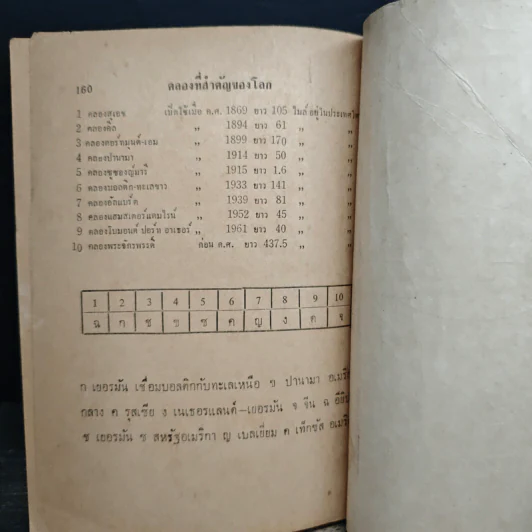 160 คลองที่สำคัญของโลก
1 คลองสุเอซ เปิดใช้เมื่อ ค.ศ. 1869 ยาว 105 ไมล์ อยู่ในประเทศ
2 คลองคีล ,, 1894 ยาว 61 ,, ,,
3 คลองดอร์ทมุนด์-เอม ,, 1899 ยาว 170 ,, ,,
4 คลองปานามา ,, 1914 ยาว 50 ,, ,,
5 คลองซูซองญ์มารี ,, 1915 ยาว 1.6 ,, ,,
6 คลองบอลติค-ทะเลขาว ,, 1933 ยาว 141 ,, ,,
7 คลองอัลแบร์ต ,, 1939 ยาว 81 ,, ,,
8 คลองอมสเตอร์แดมไรน์ ,, 1952 ยาว 45 ,, ,,
9 คลองโบมอนต์ ปอร์ท อาเธอร์ ,, 1961 ยาว 40 ,, ,,
10 คลองพระจักรพรรดิ์ ก่อน ค.ศ. ยาว 437.5 ,, ,,
1 2 3 4 5 6 7 8 9 10
ฉ ก ช ข ซ ค ญ ง ต จ
ก เยอรมัน เชื่อมบอลติกกับทะเลเหนือ ข ปานามา
กลาง ค รุสเซีย ง เนเธอรแลนด์-เยอรมัน จ จีน ฉ
ช เยอรมัน ซ สหรัฐอเมริกา ญ เบลเยี่ยม ต เท็กซัส